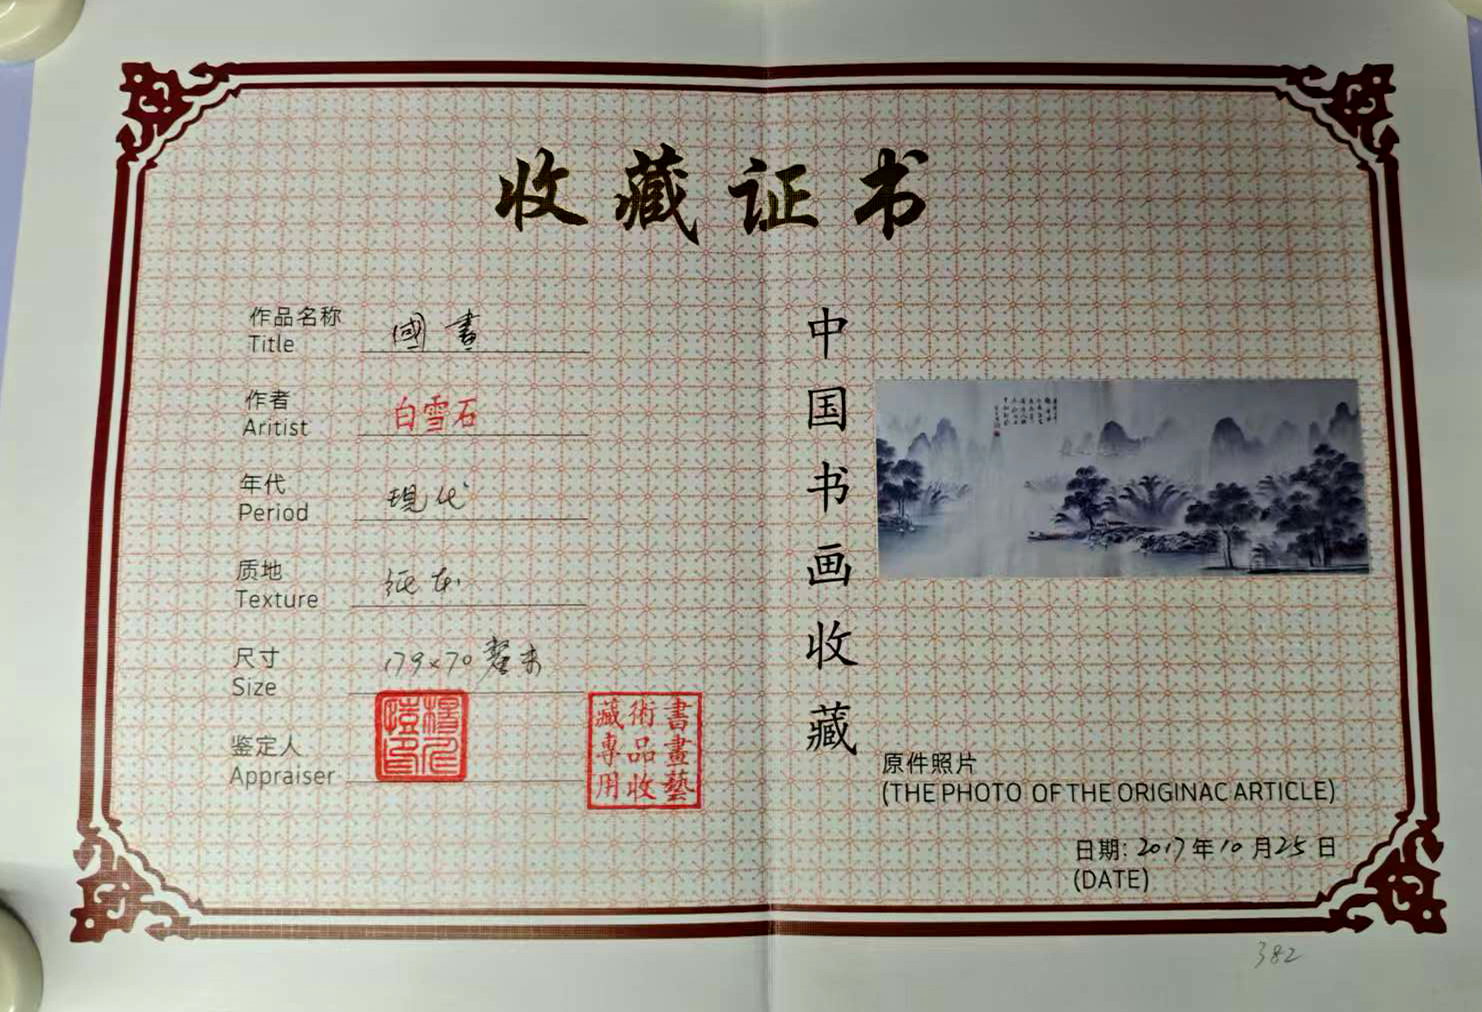 收藏证书
作品名称
Title
國畫
作者
Aritist
白雪石
年代
Period
現代
质地
Texture
纸本
尺寸
Size
179×70釐米
鉴定人
Appraiser
書畫藝
術品收
藏專用
中国书画收藏
原件照片
(THE PHOTO OF THE ORIGINAC ARTICLE)
日期: 2017年10月25日
(DATE)
382